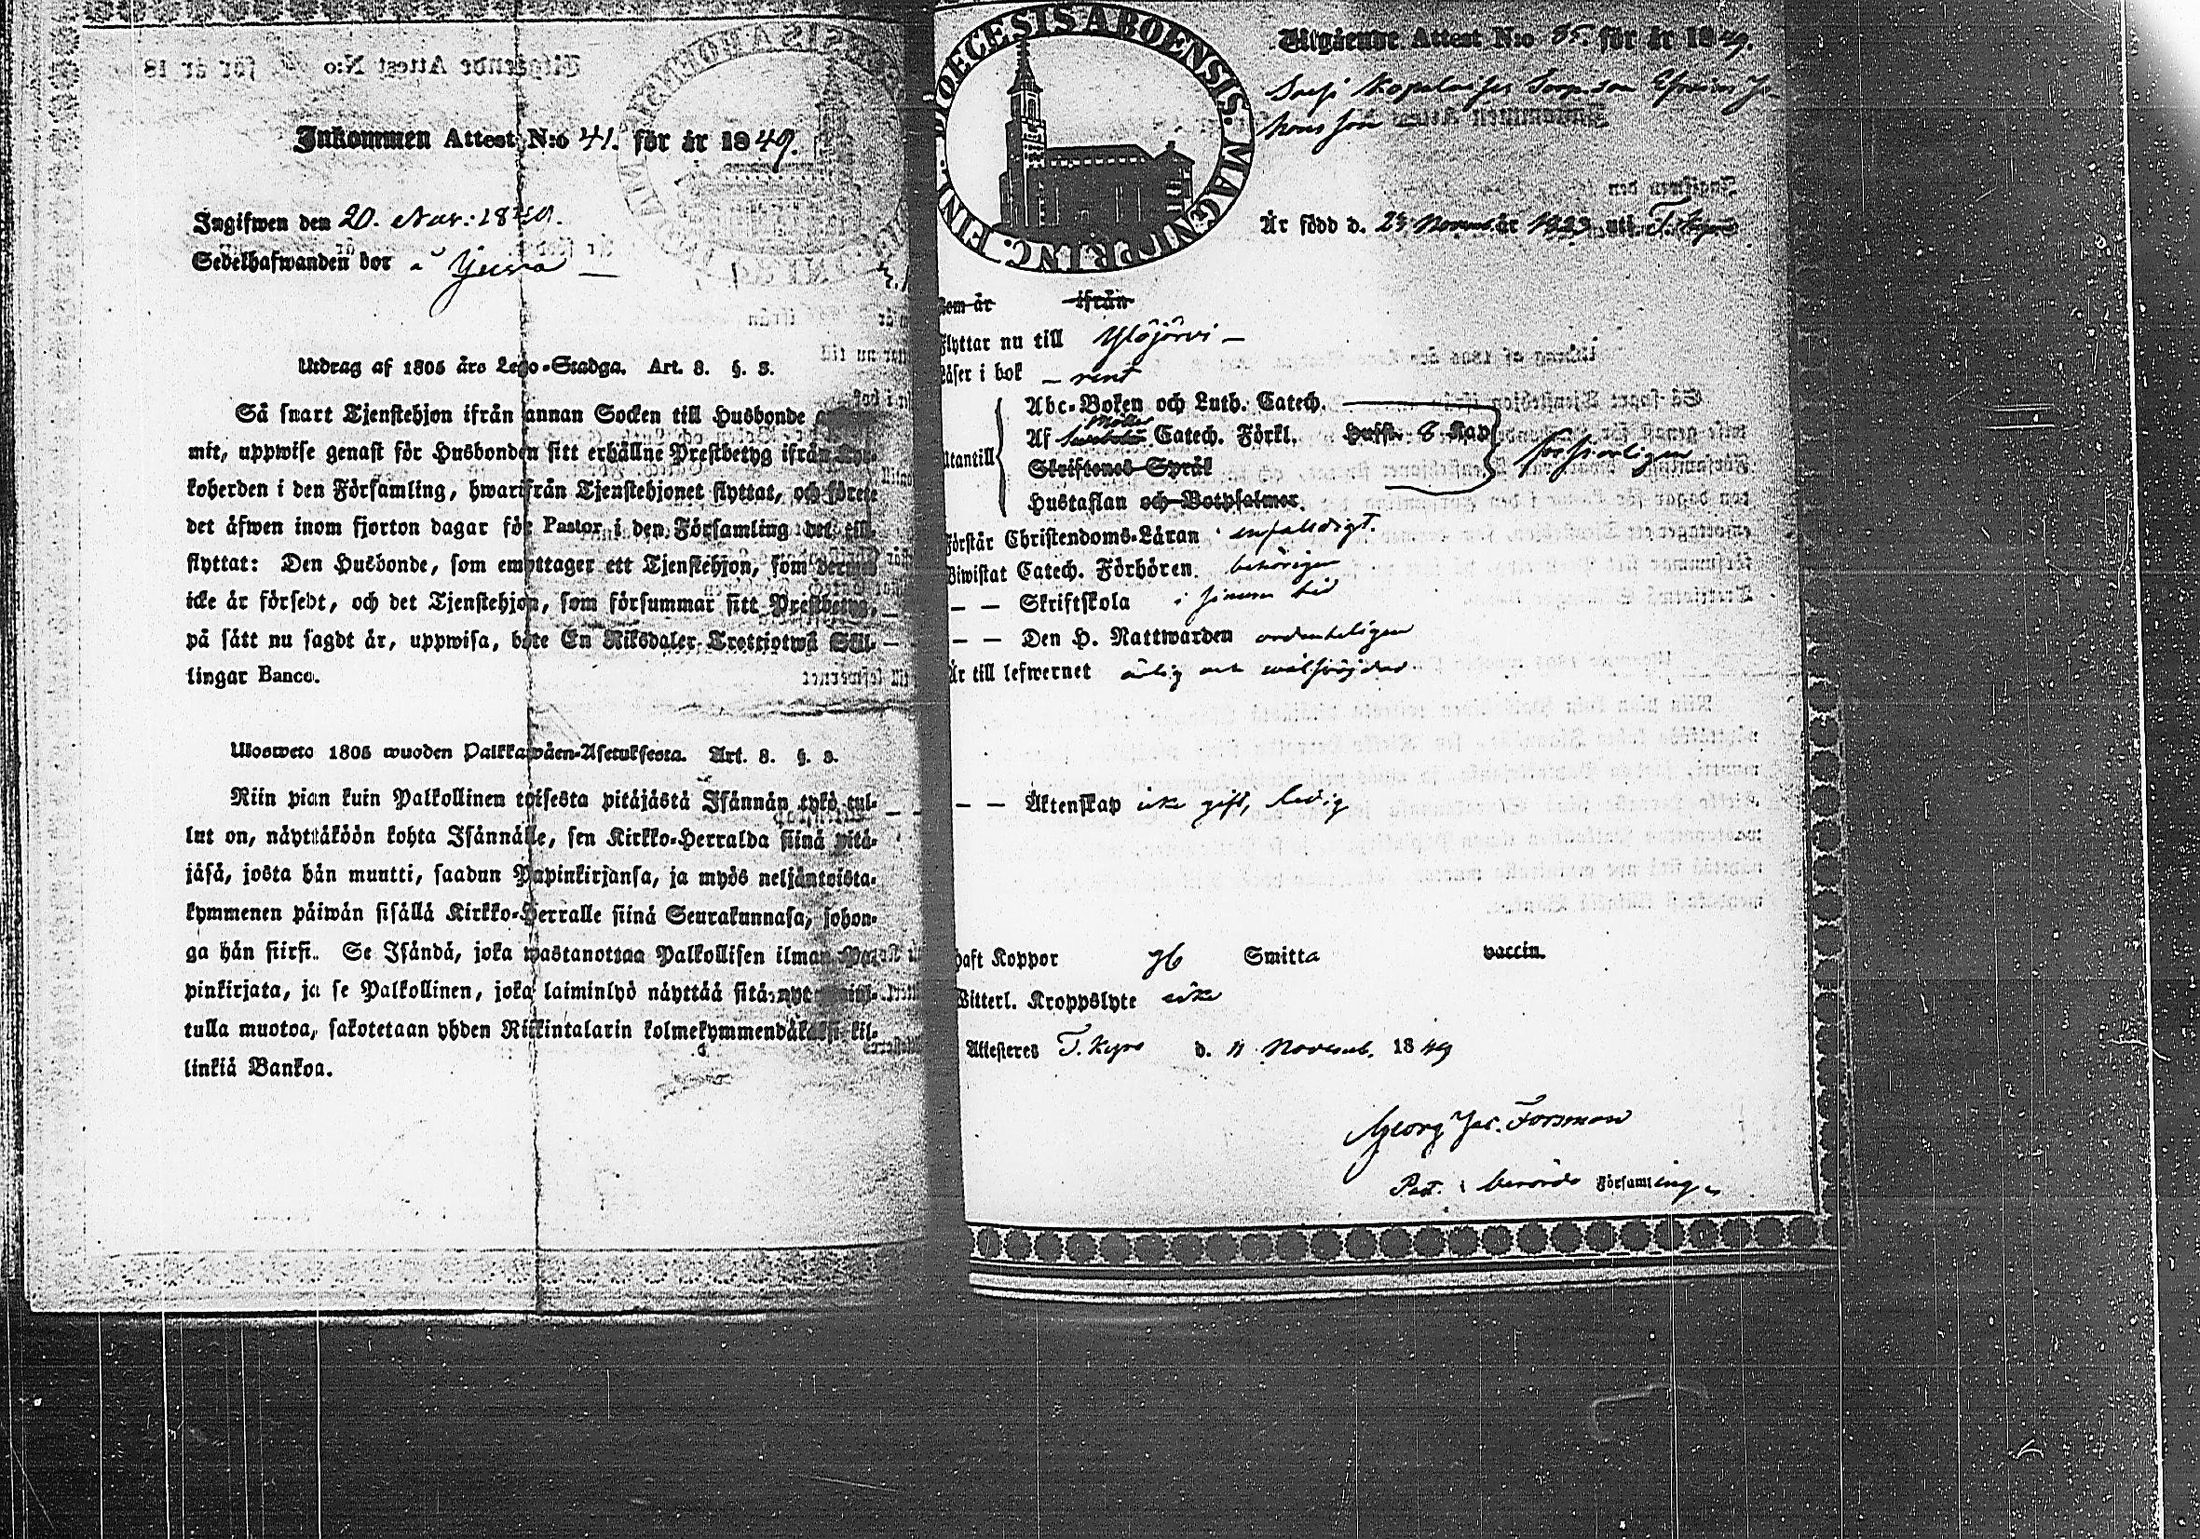 Inkommen Attest N:o 41. för år 1849.
Ingifwen den 20. Nov. 1849.
Sedelhafwanden bor å
Utdrag af 1805 års Lego-Stadga. Art. 8. §. 3.
Så snart Tjenstehjon ifrån annan Socken till Husbonde
mit, uppwise genast för Husbonden sitt erhållne Prestbetyg ifrån Kyr-
koherden i den Församling, hwarifrån Tjenstehjonet flyttat, och förete
det äfwen inom fjorton dagar för Pastor i den Församling det till-
flyttat: Den Husbonde, som emottager ett Tjenstehjon, som dermed
icke är försedt, och det Tjenstehjon, som försummar sitt Prestbetyg,
på sätt nu sagdt är, uppwisa, böte En Riksdaler Trettiotwå Skil-
lingar Banco.
Ulosweto 1805 wuoden Palkkawäen-Asetuksesta. Art. 8. §. 3.
Niin pian kuin Palkollinen toisesta pitäjästä Isännän tykö tul-
lut on, näyttäköön kohta Isännälle, sen Kirkko-Herralda siinä pitä-
jäsä, josta hän muutti, saadun Papinkirjansa, ja myös neljäntoista-
kymmenen päiwän sisällä Kirkko-Herralle siinä Seurakunnasa, johon-
ga hän siirsi. Se Isändä, joka wastanottaa Palkollisen ilman Pa-
pinkirjata, ja se Palkollinen, joka laiminlyö näyttää sitä nyt
tulla muotoa, sakotetaan yhden Riikintalarin kolmekymmendäkaksi kil-
linkiä Bankoa.
DIOECESIS ABOENSIS. MAGNI PRINC. FINL.
Utgående Attest N:o 85. för år 1849.
Efraim
Är född d. 23 Novemb. år 1823 uti T. Kyro
Som är ifrån
Flyttar nu till Ylöjärvi
Läser i bok rent
Abc-Boken och Luth. Catech.
Möller
Af Swebelii Catech. Förkl. Hufst. 8 Kap
Utantill försvarligen
Skriftenes Språk
Hustaflan och Botpsalmer.
Förstår Christendoms-Läran enfaldigt.
Biwistat Catech. Förhören behörigen
— — Skriftskola i sinom tid
— — Den H. Nattwarden ordenteligen
Är till lefwernet ärlig och wälfräjdad
— — Äktenskap icke gift, ledig
Haft Koppor Smitta vaccin.
Witterl. Kroppslyte icke
Attesteras T. Kyro d. 11 Novemb. 1849
Georg Jac. Forsman
Past. i berörde Församling